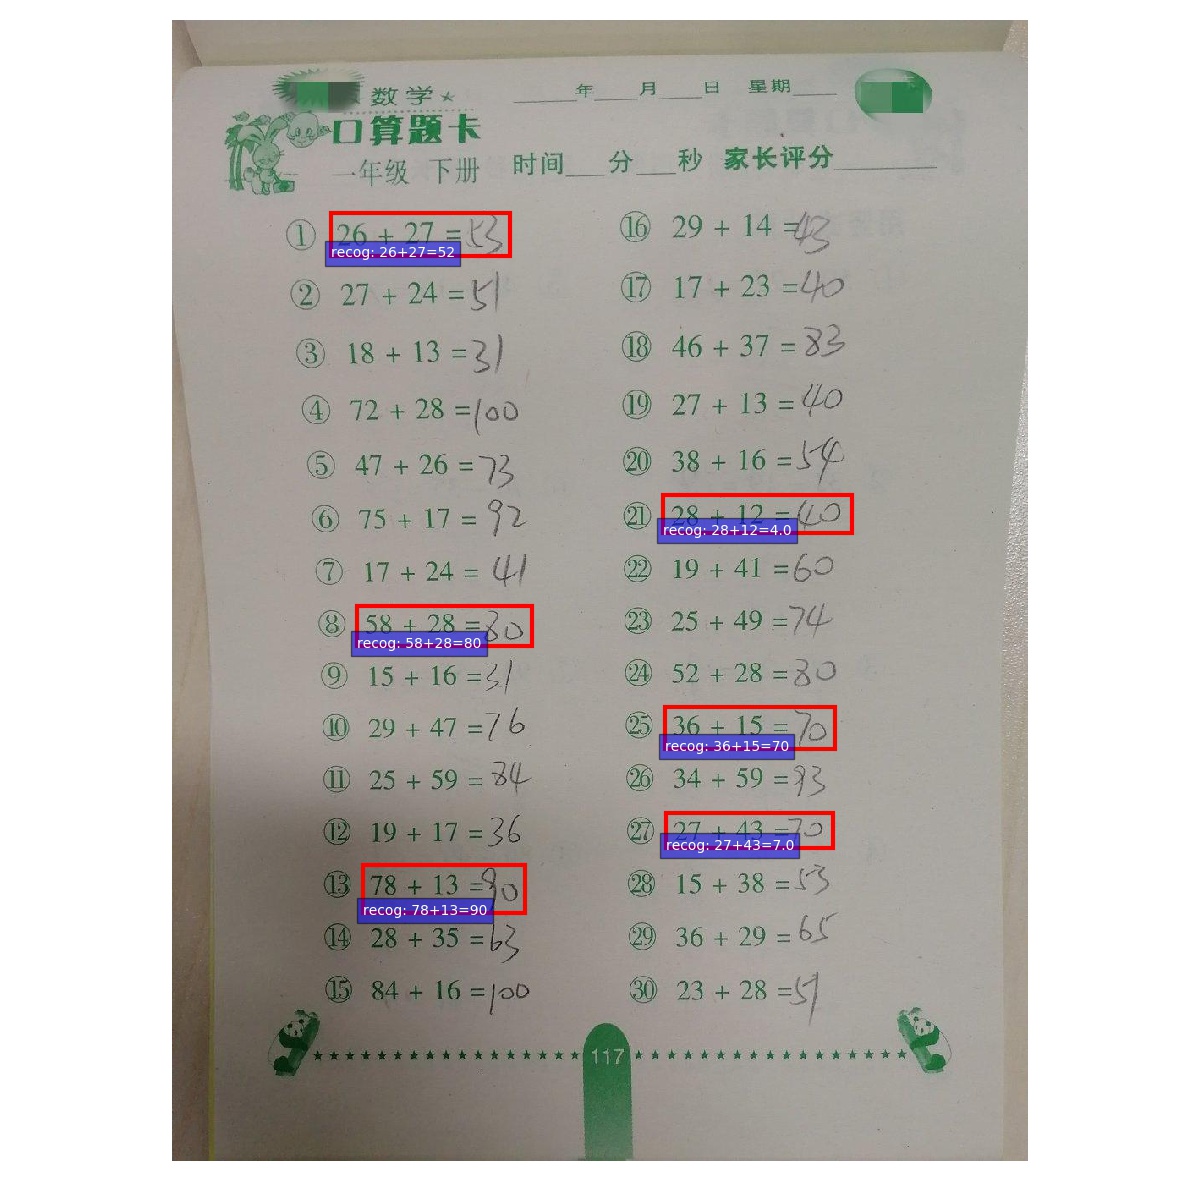 数学
年 月 日 星期
口算题卡
一年级 下册 时间 分 秒 家长评分
① 26 + 27 = 53
recog: 26+27=52
② 27 + 24 = 51
③ 18 + 13 = 31
④ 72 + 28 = 100
⑤ 47 + 26 = 73
⑥ 75 + 17 = 92
⑦ 17 + 24 = 41
⑧ 58 + 28 = 80
recog: 58+28=80
⑨ 15 + 16 = 31
⑩ 29 + 47 = 76
⑪ 25 + 59 = 84
⑫ 19 + 17 = 36
⑬ 78 + 13 = 90
recog: 78+13=90
⑭ 28 + 35 = 63
⑮ 84 + 16 = 100
⑯ 29 + 14 = 43
⑰ 17 + 23 = 40
⑱ 46 + 37 = 83
⑲ 27 + 13 = 40
⑳ 38 + 16 = 54
㉑ 28 + 12 = 40
recog: 28+12=4.0
㉒ 19 + 41 = 60
㉓ 25 + 49 = 74
㉔ 52 + 28 = 80
㉕ 36 + 15 = 70
recog: 36+15=70
㉖ 34 + 59 = 93
㉗ 27 + 43 = 70
recog: 27+43=7.0
㉘ 15 + 38 = 53
㉙ 36 + 29 = 65
㉚ 23 + 28 = 51
117